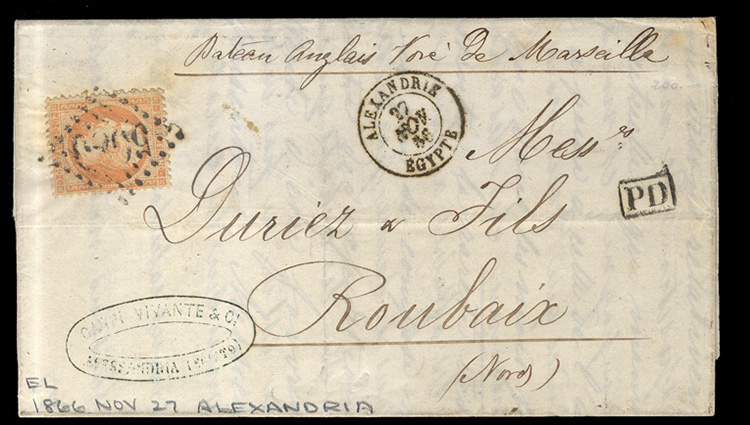 Bateau Anglais Voië de Marseille
200.-
ALEXANDRIE
27
NOV
66
ÉGYPTE
5080
Messrs
PD
Duriez & Fils
Roubaix
(Nord)
VIVANTE & Co.
ALESSANDRIA (EGITTO)
EL
1866 NOV 27 ALEXANDRIA